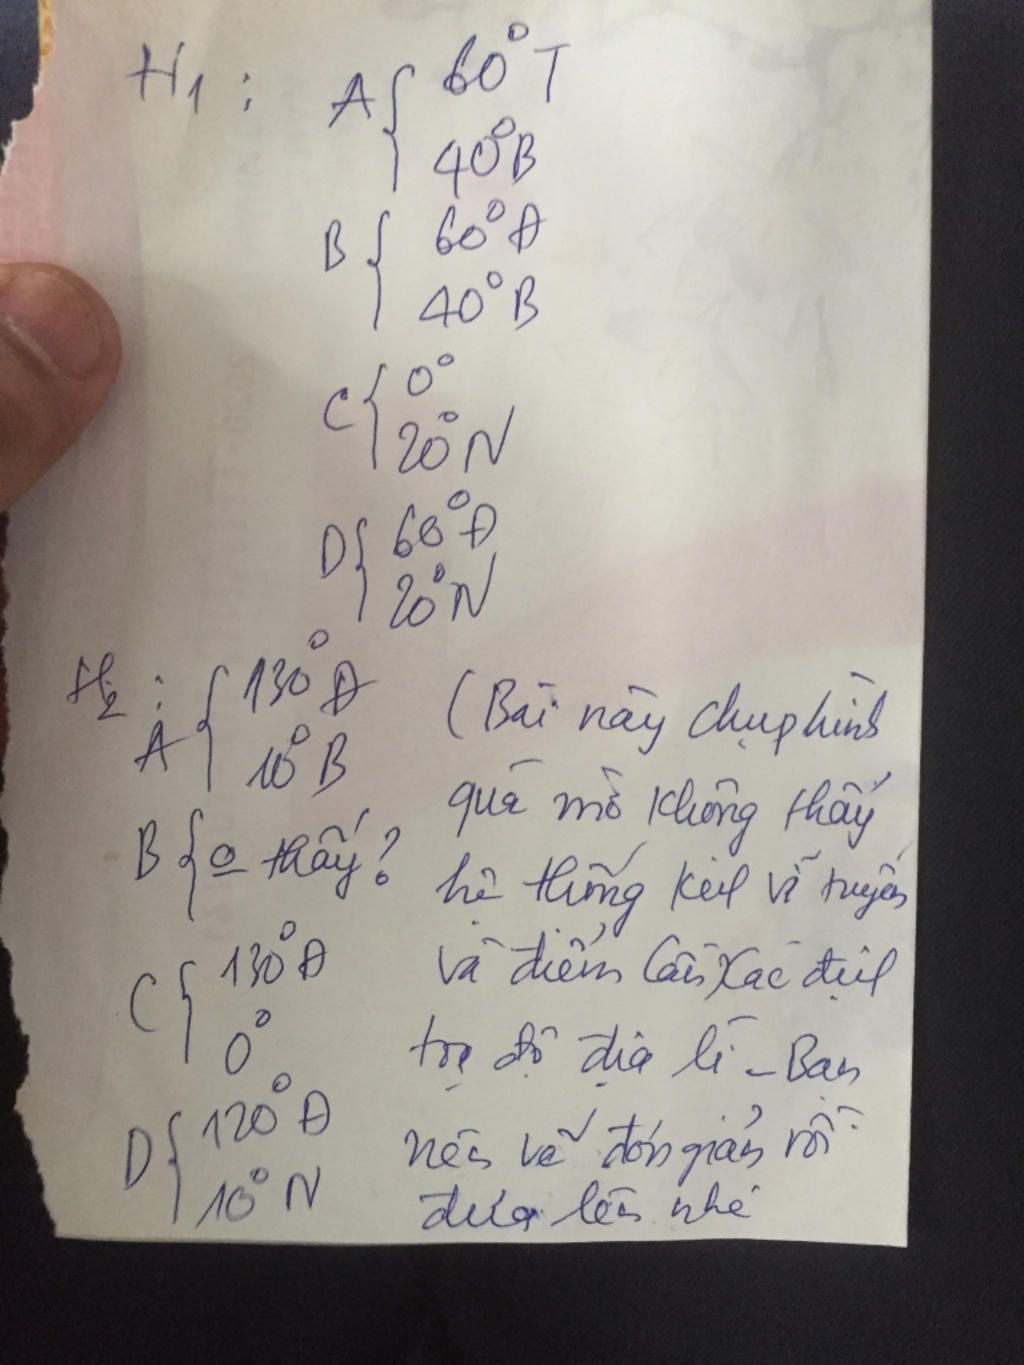 H1 : A { 60° T
40° B
B { 60° Đ
40° B
C { 0°
20° N
D { 60° Đ
20° N
H2 : A { 130° Đ
10° B
B { o thấy?
C { 130° Đ
0°
D { 120° Đ
10° N
(Bài này chụp hình
quá mờ không thấy
hệ thống kinh vĩ tuyến
và điểm cần xác định
toạ độ địa lí - Bạn
nên vẽ đơn giản rồi
đưa lên nhé